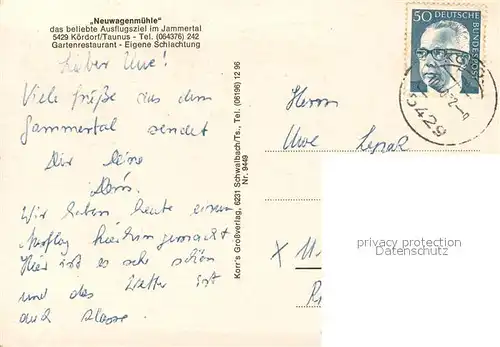 „Neuwagenmühle"
das beliebte Ausflugsziel im Jammertal
5429 Kördorf/Taunus - Tel. (064376) 242
Gartenrestaurant - Eigene Schlachtung
Lieber Uwe!
Viele Grüße aus dem
Jammertal sendet
Dir Deine
Wir haben heute einen
Ausflug hierhin gemacht
Hier ist es sehr schön
und das Wetter ist
auch klasse.
Korr's Großverlag, 6231 Schwalbach/Ts., Tel. (06196) 12 96
Nr. 9449
50 DEUTSCHE
BUNDESPOST
5429
Herrn
Uwe
privacy protection
Datenschutz